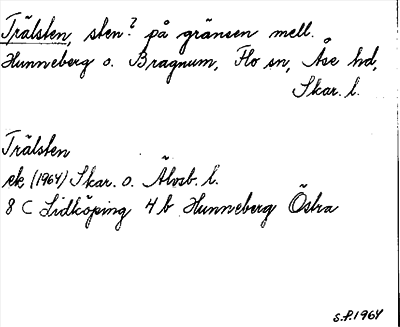 Trälsten, sten? på gränsen mell.
Hunneberg o. Bragnum, Flo sn, Åse hd,
Skar. l.
Trälsten
ek (1964) Skar. o. Älvsb. l.
8 C Lidköping 4 b Hunneberg Östra
S.F. 1964